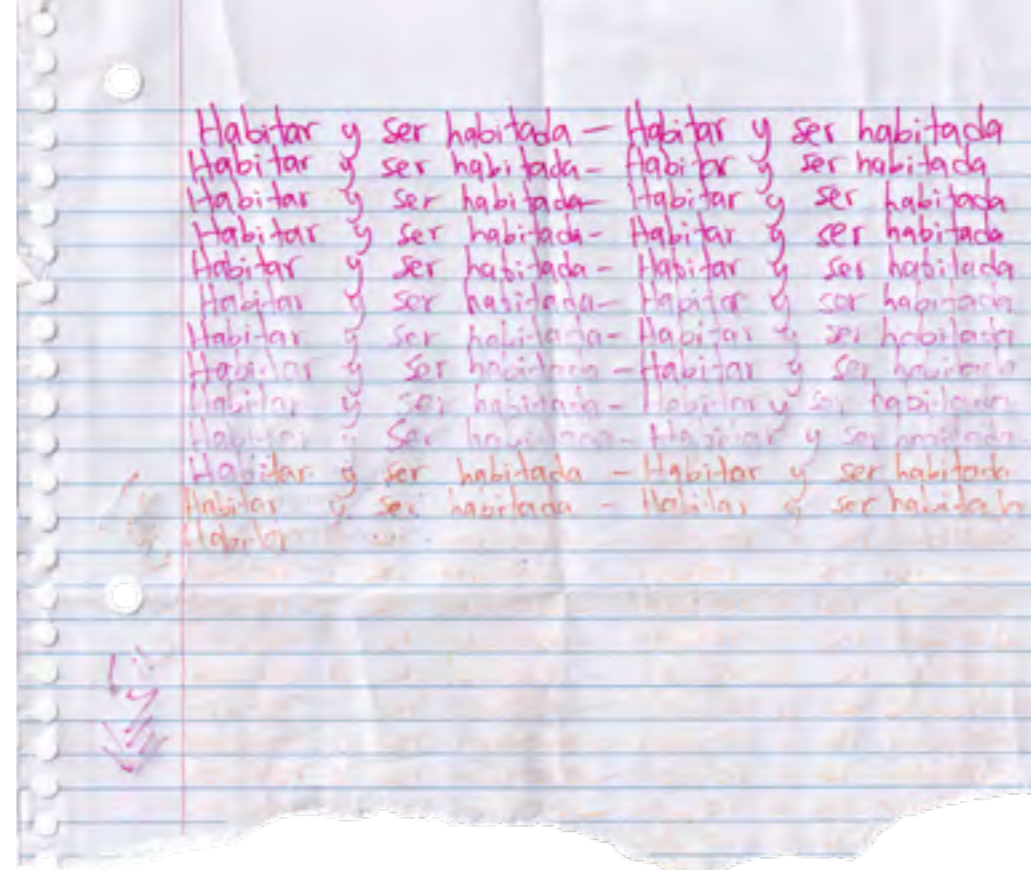 Habitar y ser habitada - Habitar y ser habitada
Habitar y ser habitada - Habitar y ser habitada
Habitar y ser habitada - Habitar y ser habitada
Habitar y ser habitada - Habitar y ser habitada
Habitar y ser habitada - Habitar y ser habitada
Habitar y ser habitada - Habitar y ser habitada
Habitar y ser habitada - Habitar y ser habitada
Habitar y ser habitada - Habitar y ser habitada
Habitar y ser habitada - Habitar y ser habitada
Habitar y ser habitada - Habitar y ser habitada
Habitar y ser habitada - Habitar y ser habitada
Habitar y ser habitada - Habitar y ser habitada
Habitar